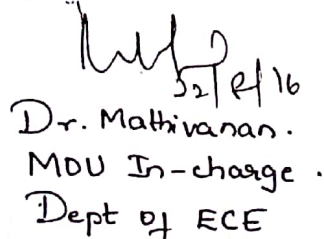 Dr. Mathivanan.
MOU In-charge.
Dept of ECE